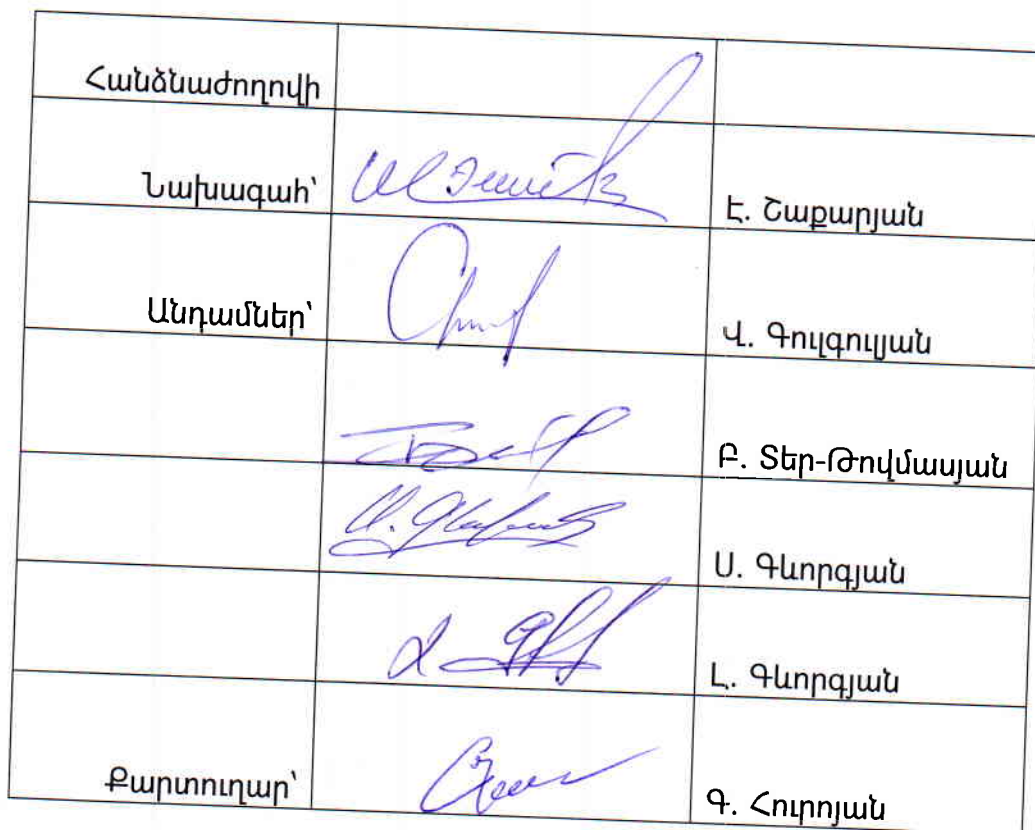 Հանձնաժողովի
Նախագահ՝ Է. Շաքարյան
Անդամներ՝ Վ. Գուլգուլյան
Բ. Տեր-Թովմասյան
Ս. Գևորգյան
Լ. Գևորգյան
Քարտուղար՝ Գ. Հուրոյան